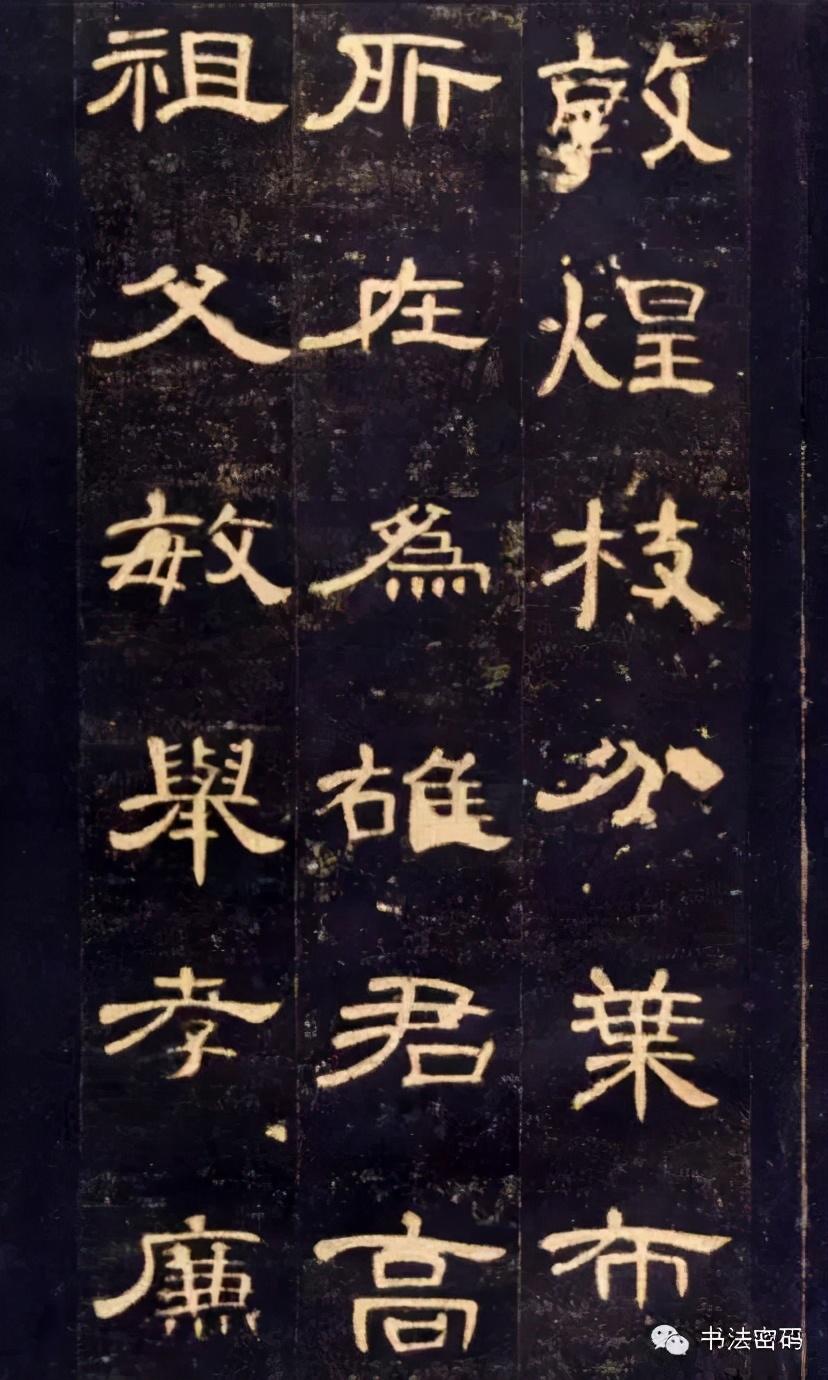 敦煌枝分葉布
所在為雄君高
祖父敏舉孝廉
书法密码